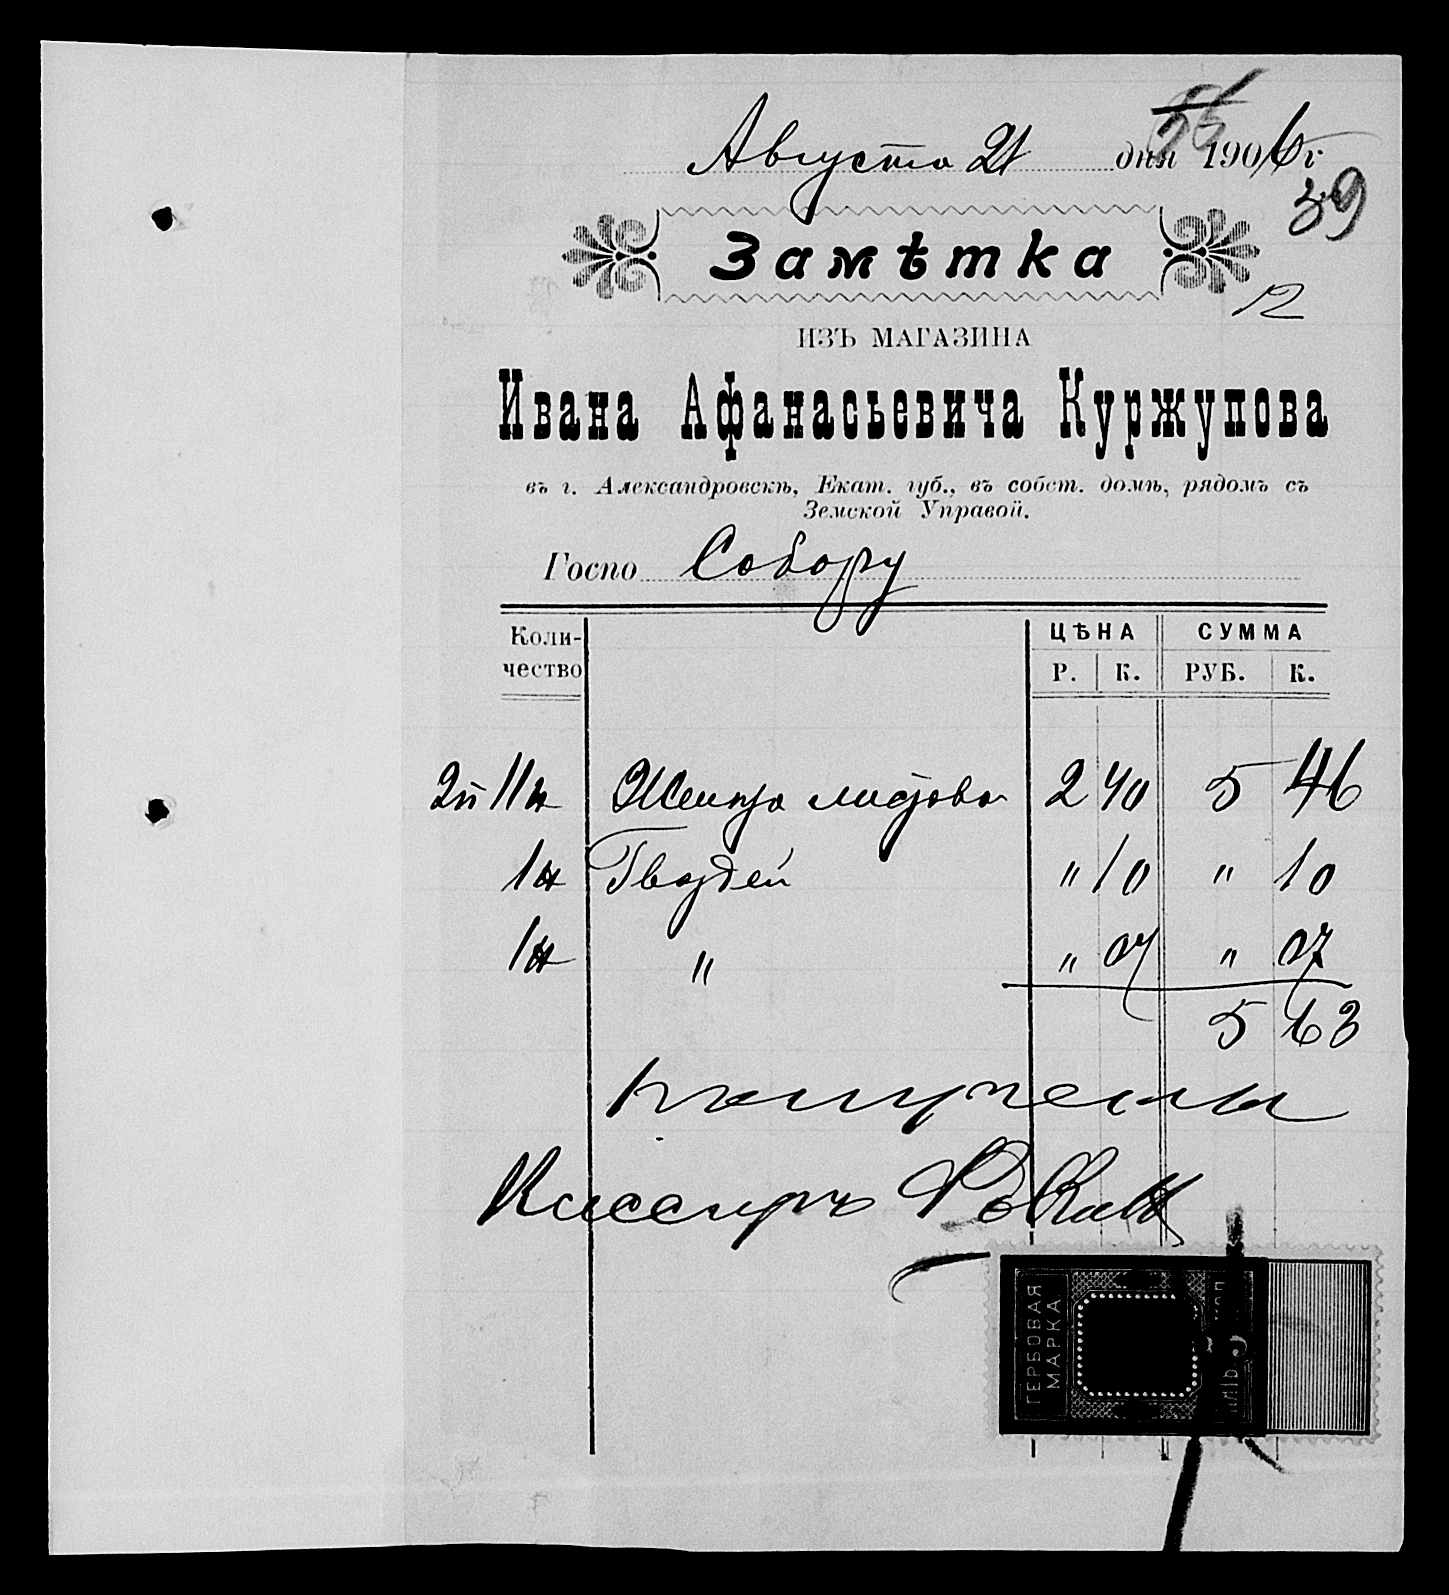 Августа 21 дня 1906 г
39
Замѣтка
12
ИЗЪ МАГАЗИНА
Ивана Афанасьевича Куржупова
въ г. Александровскѣ, Екат. губ., въ собст. домѣ, рядомъ съ
Земской Управой.
Госпо Собору
Количество ЦѢНА СУММА
Р. К. РУБ. К.
2 п 11 2 40 5 46
1 Гвоздей " 10 " 10
1 " " 07 " 07
5 63
получены
Кассиръ
ГЕРБОВАЯ
МАРКА